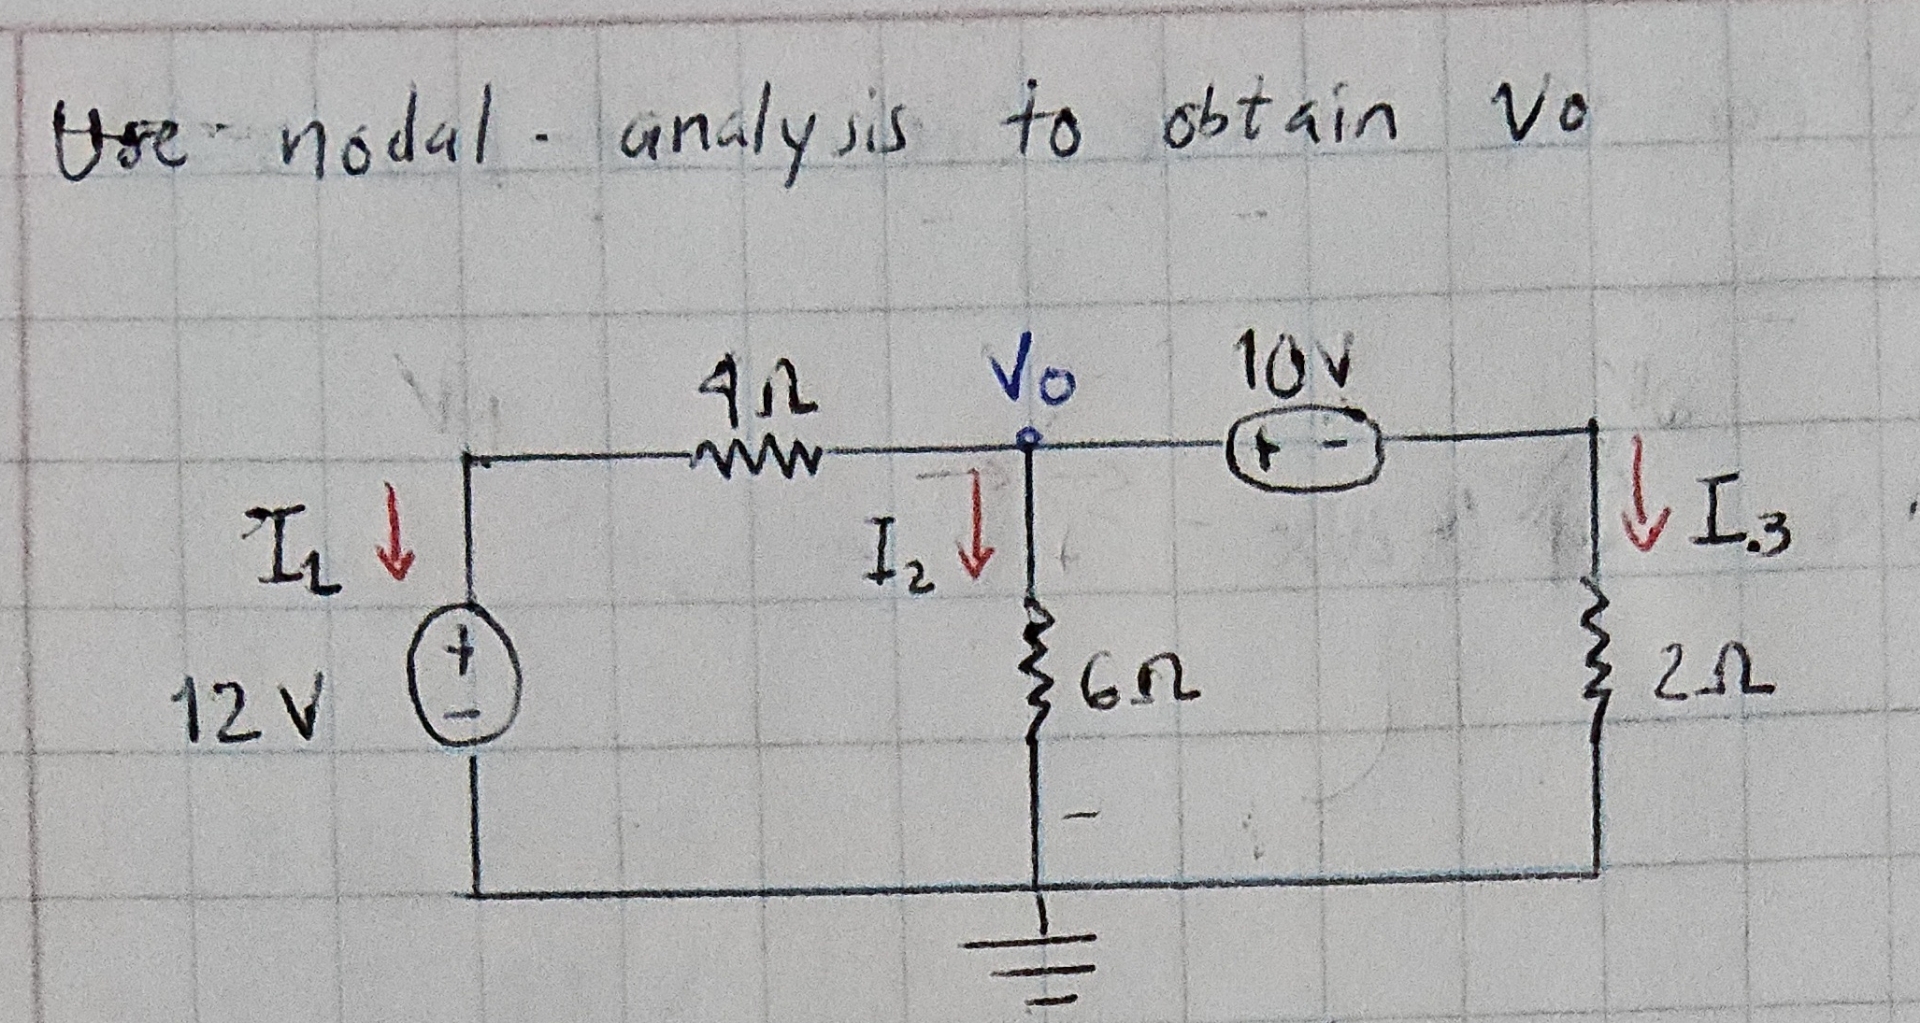 Use nodal. analysis to obtain Vo
4Ω Vo 10V
+ -
I1 I2 I.3
12 V + - 6Ω 2Ω
-